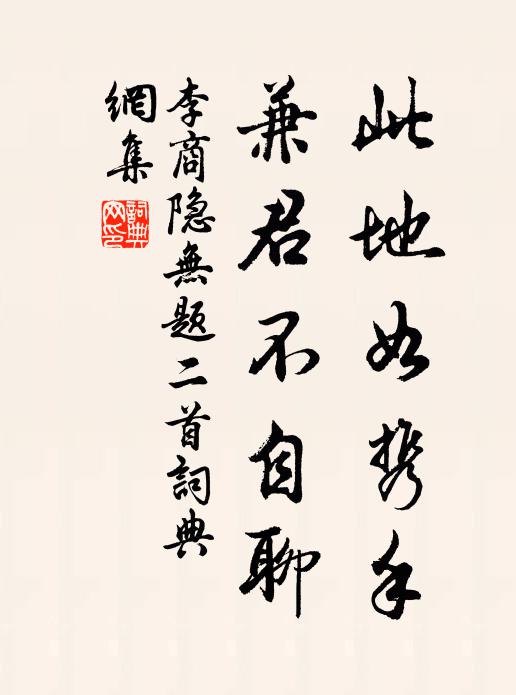 此地如携手
兼君不自聊
李商隐無题二首詞典
網集
詞典网印